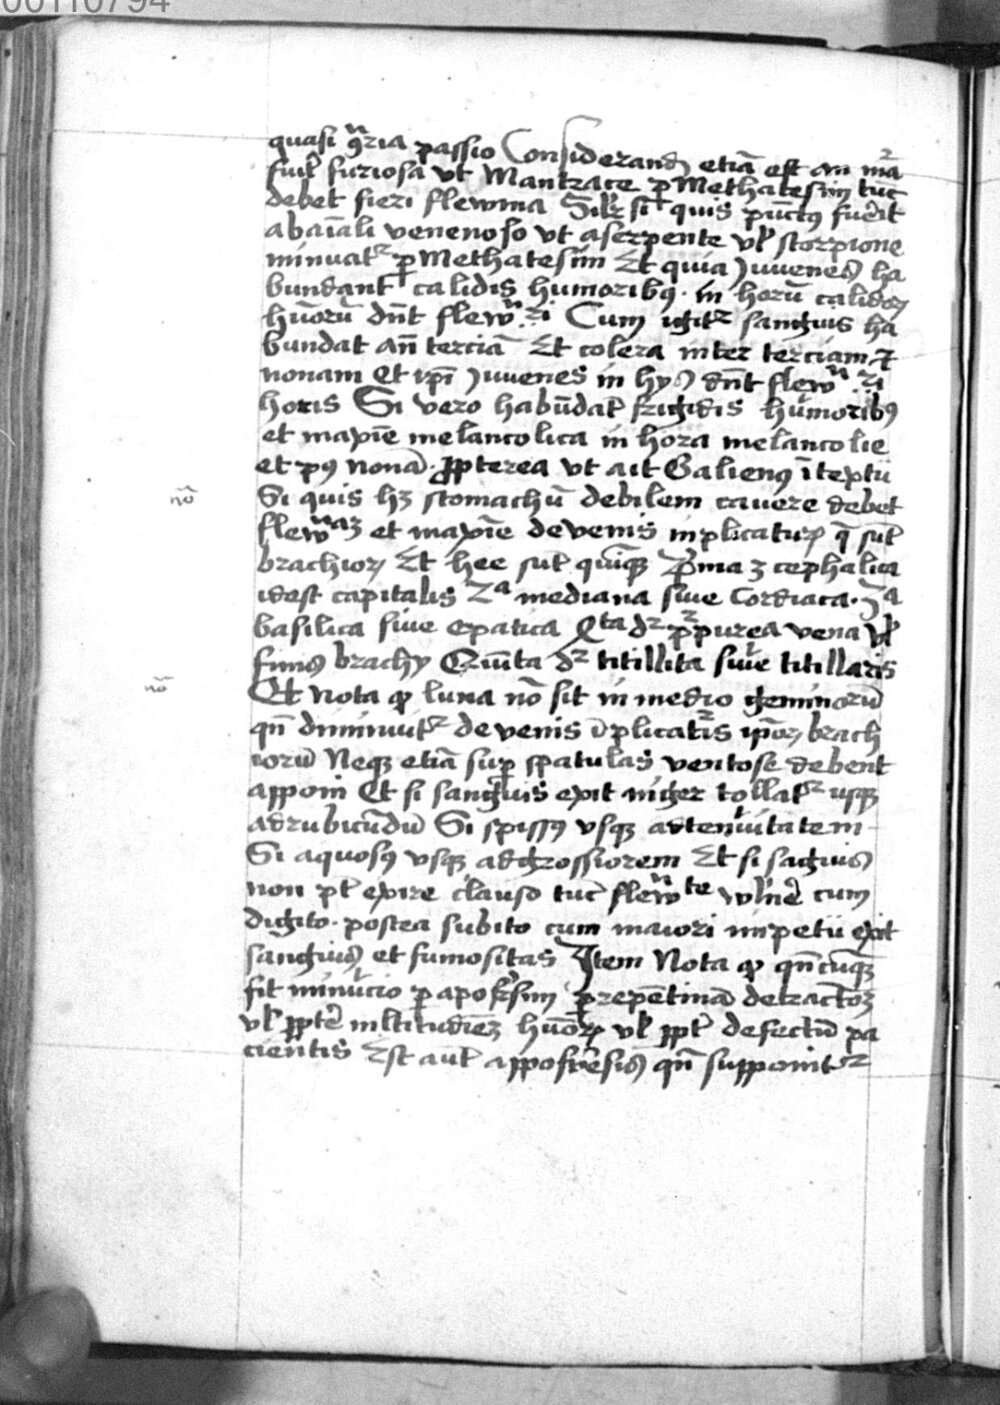 00110794
quasi ꝯ̃ria passio Considerandꝫ etiā est an mā
fuit̃ furiosa vt Mantrace ꝑ Methatesim tūc
debet fieri flewma Silr̃ si quis pūctꝯ fuẽit
abaīali venenoso vt aserpente vl̃ scorpione
minuatᷣ ꝑ Methatesim Et quia Juuenes ha
bundant calidis humoribꝯ in horũ calidoꝝ
huōrũ dñt flewᷠ.ri Cum igitᷣ sanguis ha
bundat añ terciā Et colera inter terciam ⁊
nonam Et ip̃i Juuenes in hys dñt flewᷠ.ri
horis Si vero habũdat̃ frigidis humoribꝯ
et maxīe melancolica in hora melancolie
et pꝯ nonā. ꝓpterea vt ait Galienꝯ ī textu
nō
Si quis hꝫ stomachũ debilem cauere debet
flewᷠaꝫ et maxīe devenis inplicatuꝝ q̃ sũt
brachioꝝ Et hee sũt quīqꝫ P̃ma ꝫ cephalica
idest capitalis 2ᵃ mediana siue Cordiaca. 3ᵃ
basilica siue epatica Qͬta dᷣ purpurea vena vl̃
funis brachy Quīta dᷣ titillita siue titillaris
nō
Et nota ꝙ luna nō sit in medio geminorũ
qñ diminuitᷣ de venis īplicatis ipoꝝ brach
iorũ Neqꝫ etiā suꝑ spatulas ventose debent
apponi Et si sanguis exit niger tollatᷣ usqꝫ
adrubicũdũ Si spissꝯ vsqꝫ adtenuitatem
Si aquosꝯ vsqꝫ adgrossiorem Et si sāguis
non pt̃ exire clauso tũc flewᷠte wlnẽ cum
digito. postea subito cum maiori inpetu exit
sanguis et fumositas Item Nota ꝙ qñcũqꝫ
fit minucio ꝑ apofrẽsim ꝑ repētinā detractōꝫ
vl̃ ꝓptẽ ml̃titudīeꝫ huōꝝ vl̃ ꝓpt̃ defectũ pa
cientis Est aũt appofresis qñ supponitᷣ